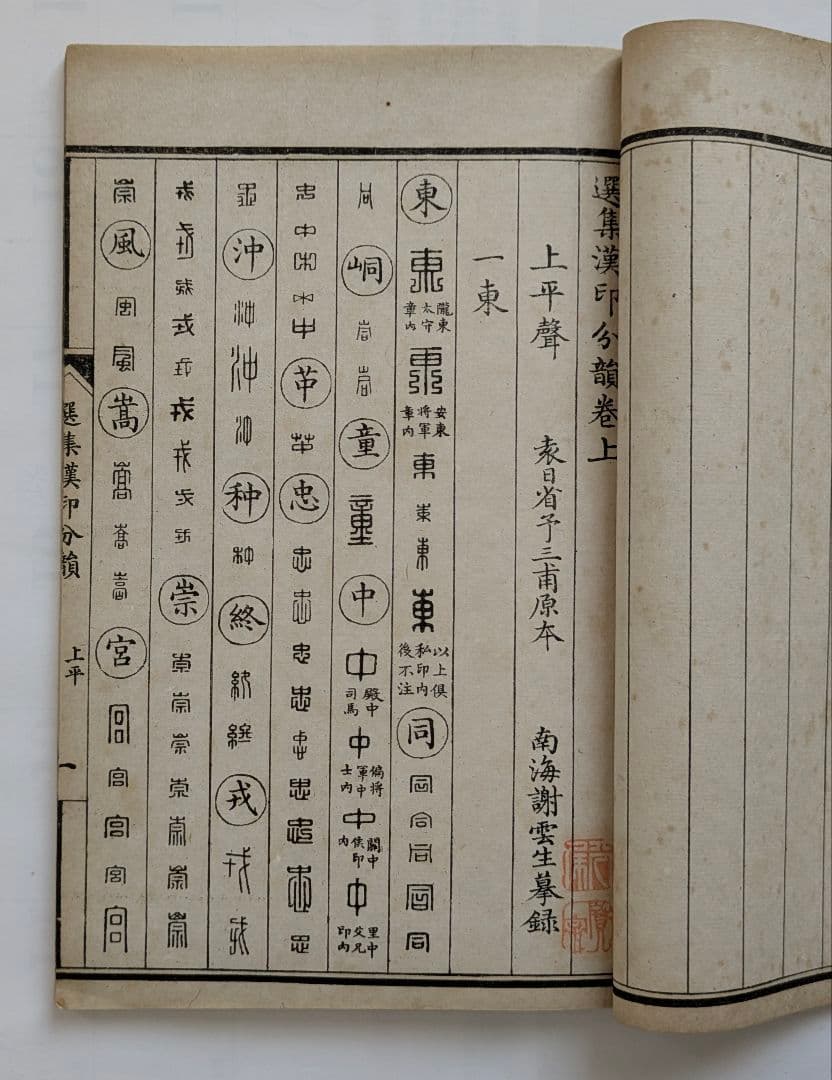 選集漢印分韻卷上
上平聲 袁日省予三甫原本 南海謝雲生摹録
一東
東 東 隴東太守章內 東 安東將軍章內 東 東 東 東 以上俱私印內後不注 同 同 同 同 同 同
同 峒 峒 峒 童 童 中 中 殿中司馬 中 偏將軍中士內 中 關中侯印內 中 里中父兄印內
中 中 中 中 忠 忠 忠 忠 忠 忠 忠 忠 忠 忠
沖 沖 沖 沖 种 种 終 終 終 戎 戎 戎
戎 戎 戎 戎 戎 戎 戎 戎 戎 崇 崇 崇 崇 崇 崇 崇 崇
崇 風 風 風 嵩 嵩 嵩 嵩 宮 宮 宮 宮 宮 宮
選集漢印分韻 上平 一